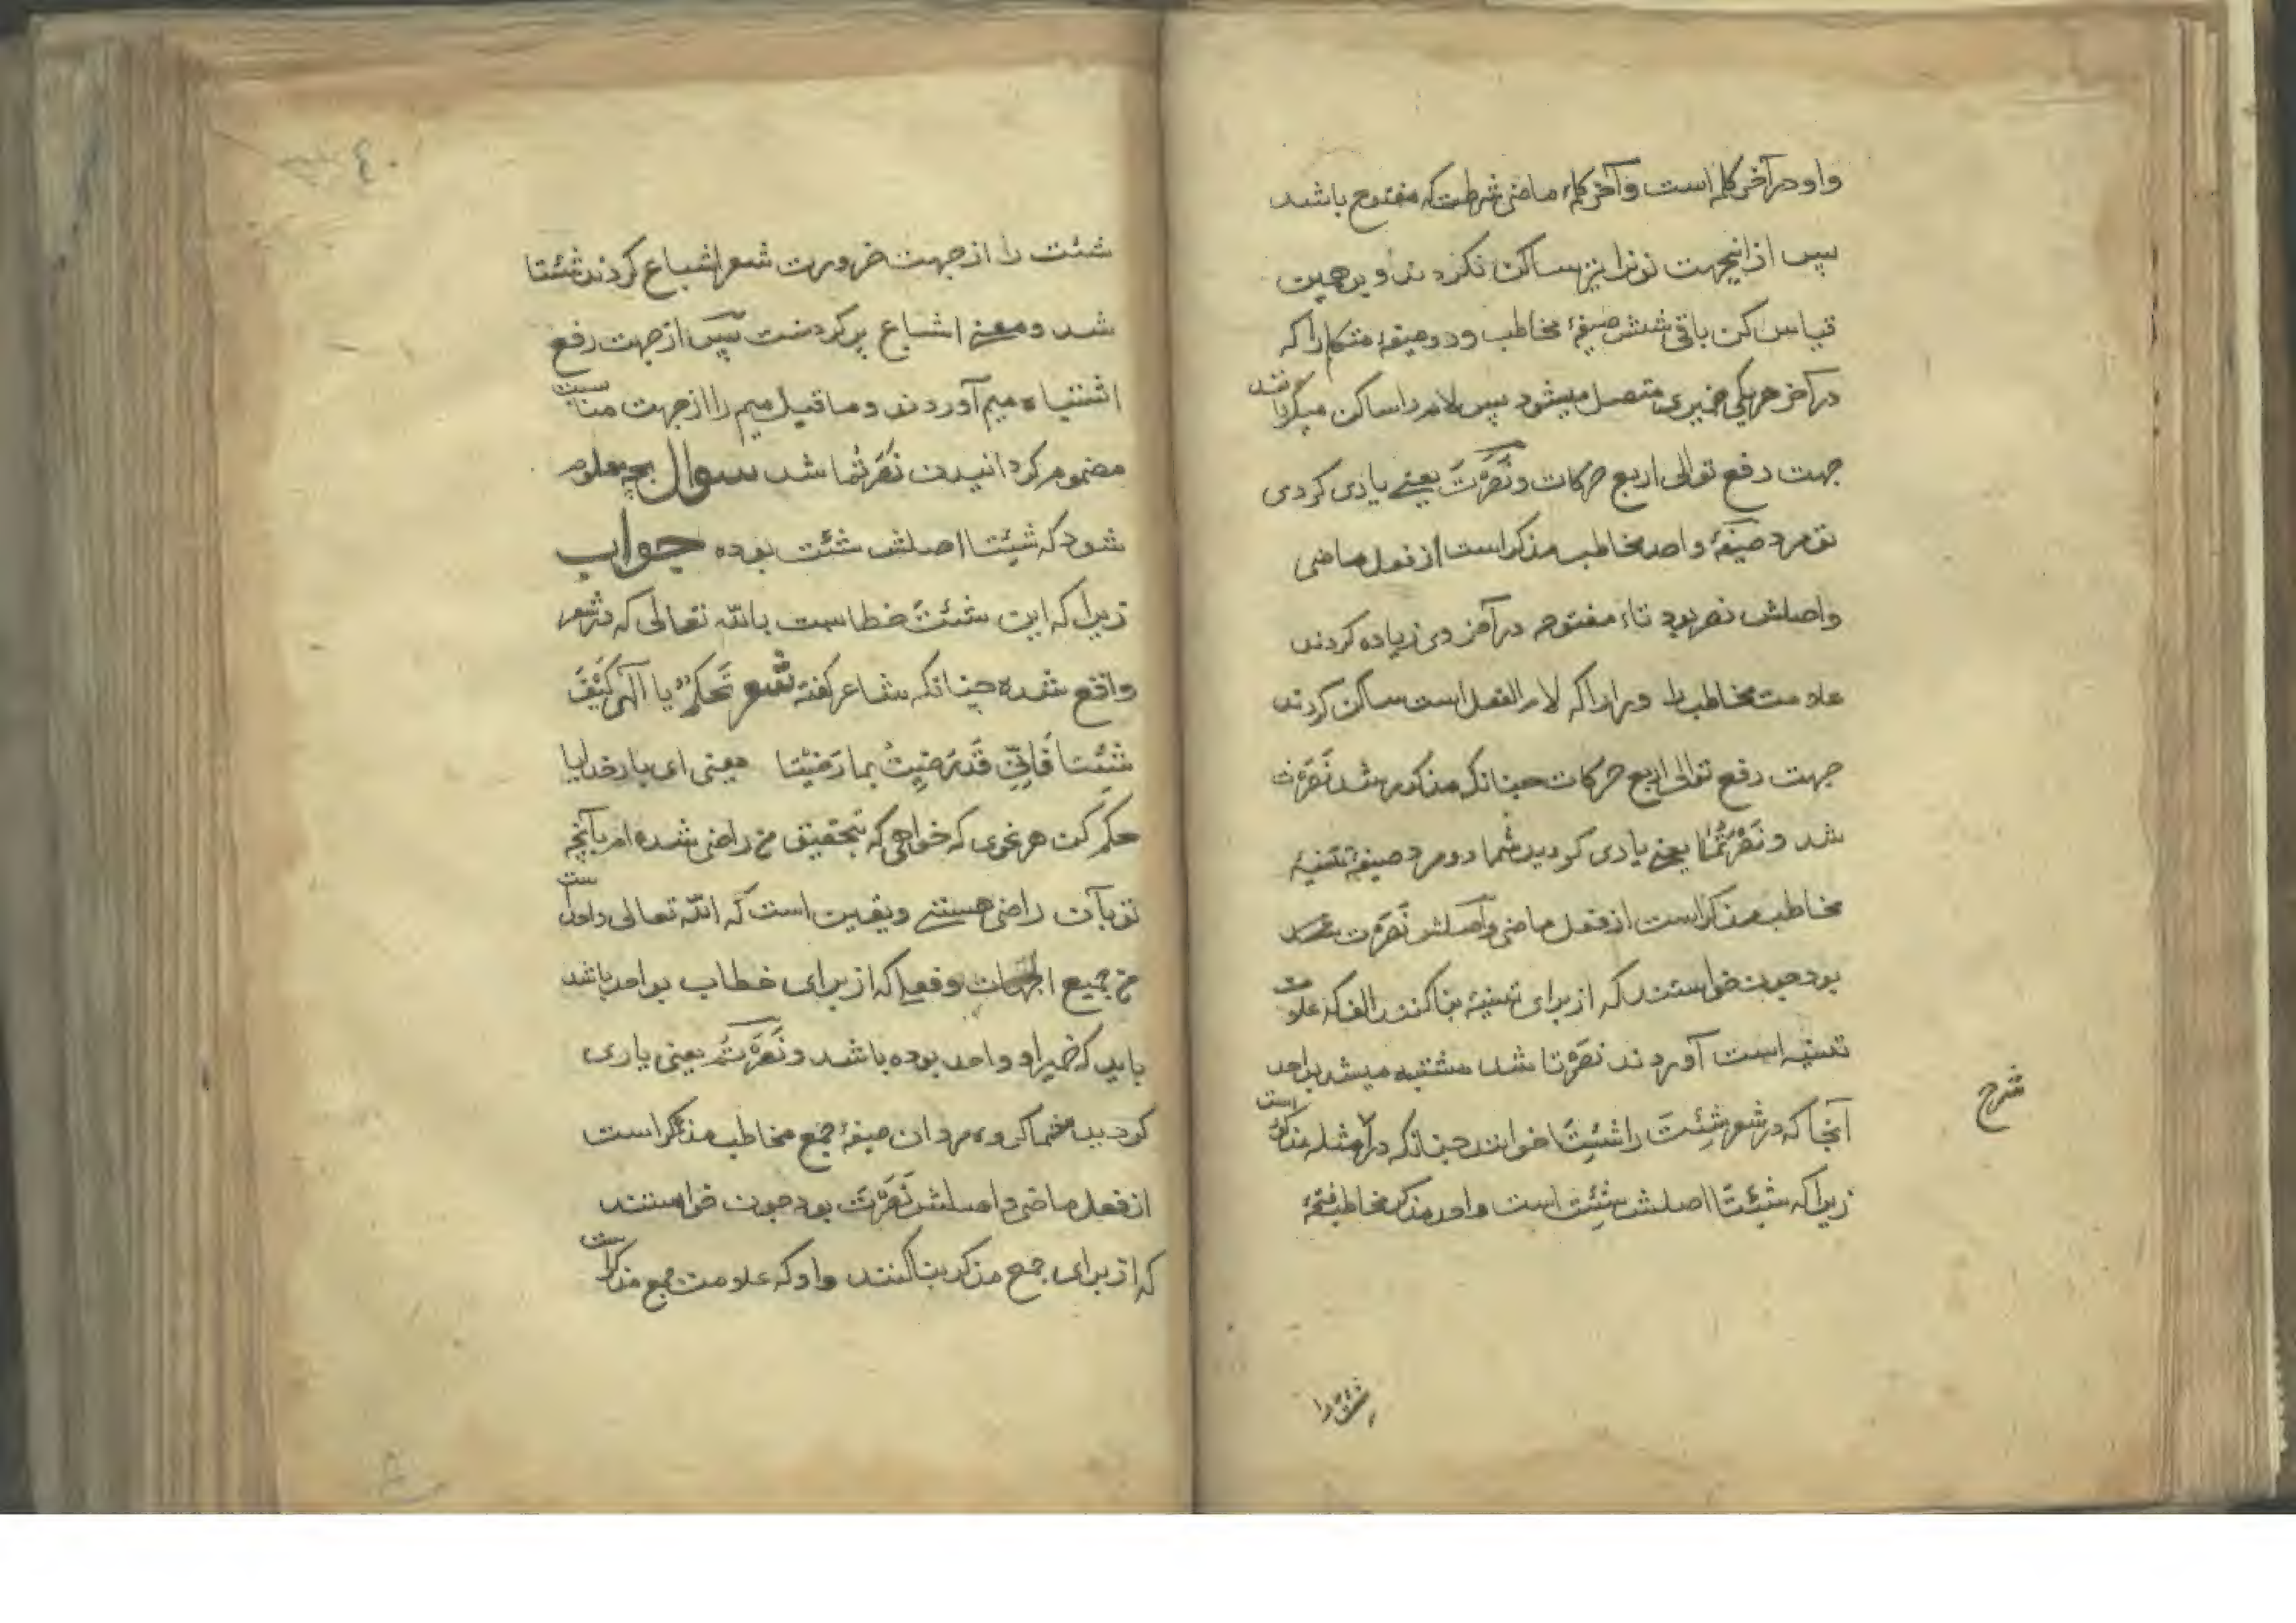 واو در آخر کلمه است و آخر کلمهٔ ماضی شرطست که مفتوح باشد
پس از اینجهت نونرا نیز ساکن نکردند و بر همین
قیاس کن باقی شش صیغهٔ مخاطب و دو صیغهٔ متکلم را که
در آخر هر یکی ضمیری متصل میشود پس لام را ساکن میگردانند
جهت دفع توالی اربع حرکات و نَصَرْتَ یعنے یاری کردی
تو مرد صیغهٔ واحد مخاطب مذکر است از فعل ماضی
واصلش نصر بود تاء مفتوحه در آخر وی زیاده کردند
علامت مخاطب را و را را که لام الفعل است ساکن کردند
جهت دفع توالی اربع حرکات چنانکه مذکور شد نَصَرْتَ
شد و نَصَرْتُمَا یعنے یاری کردید شما دو مرد صیغهٔ تثنیهٔ
مخاطب مذکر است از فعل ماضی و اصلش نَصَرْتَ
بود چون خواستند که از برای تثنیه بنا کنند الف که علامت
تثنیه است آوردند نصرتا شد مشتبه میشد بواحد
آنجا که در شعر شِئْتَ را شِئْتَا خوانند چنانکه در امثله مذکور است
زیرا که شِئْتَا اصلش شِئْتَ است واحد مذکر مخاطب فتحهٔ
شرح
شئت را
٤٠
شئت را از جهت ضرورت شعر اشباع کردند شئتا
شد و معنے اشباع پر کردنست پس از جهت رفع
اشتباه میم آوردند و ماقبل میم را از جهت مناسبت
مضموم گردانیدن نَصَرْتُما شد سوال بچه معلوم
شود که شئتا اصلش شئت بوده جواب
زیرا که این شئتَ خطاست بالله تعالی که در شعر
واقع شده چنانکه شاعر گفته شعر تَحَكَّمْ یا الٓهی كَيْفَ
شِئْتَا فَاِنِّي قَدْ رَضِيتُ بما رَضِيْتَا معنی ای بار خدایا
حکم کن هر نحوی که خواهی که بتحقیق من راضی شده ام بآنچه
تو بآن راضی هستے و یقین است که الله تعالی واحد است
من جمیع الجهات وفعلی که از برای خطاب بواحد باشد
باید که ضمیر او واحد بوده باشد و نَصَرْتُمْ یعنی یاری
کردید شما گروه مردان صیغهٔ جمع مخاطب مذکر است
از فعل ماضی و اصلش نَصَرْتَ بود چون خواستند
که از برای جمع مذکر بنا کنند واو که علامت جمع مذکر است